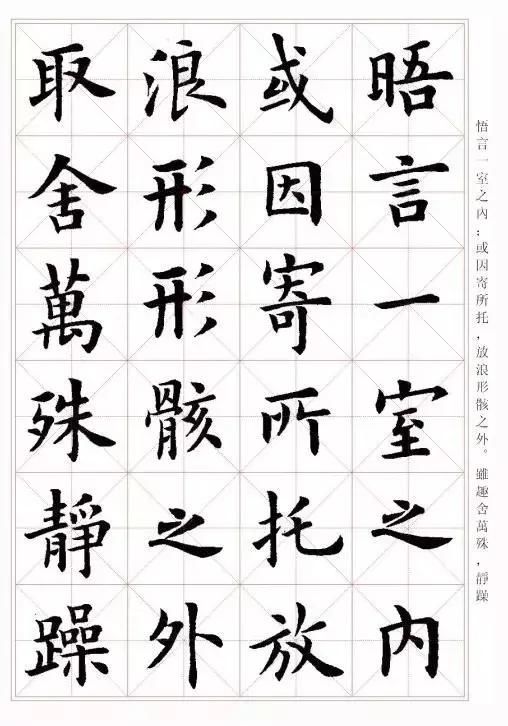 悟言一室之內；或因寄所托，放浪形骸之外。雖趣舍萬殊，靜躁
晤言一室之内
或因寄所托放
浪形形骸之外
取舍萬殊靜躁